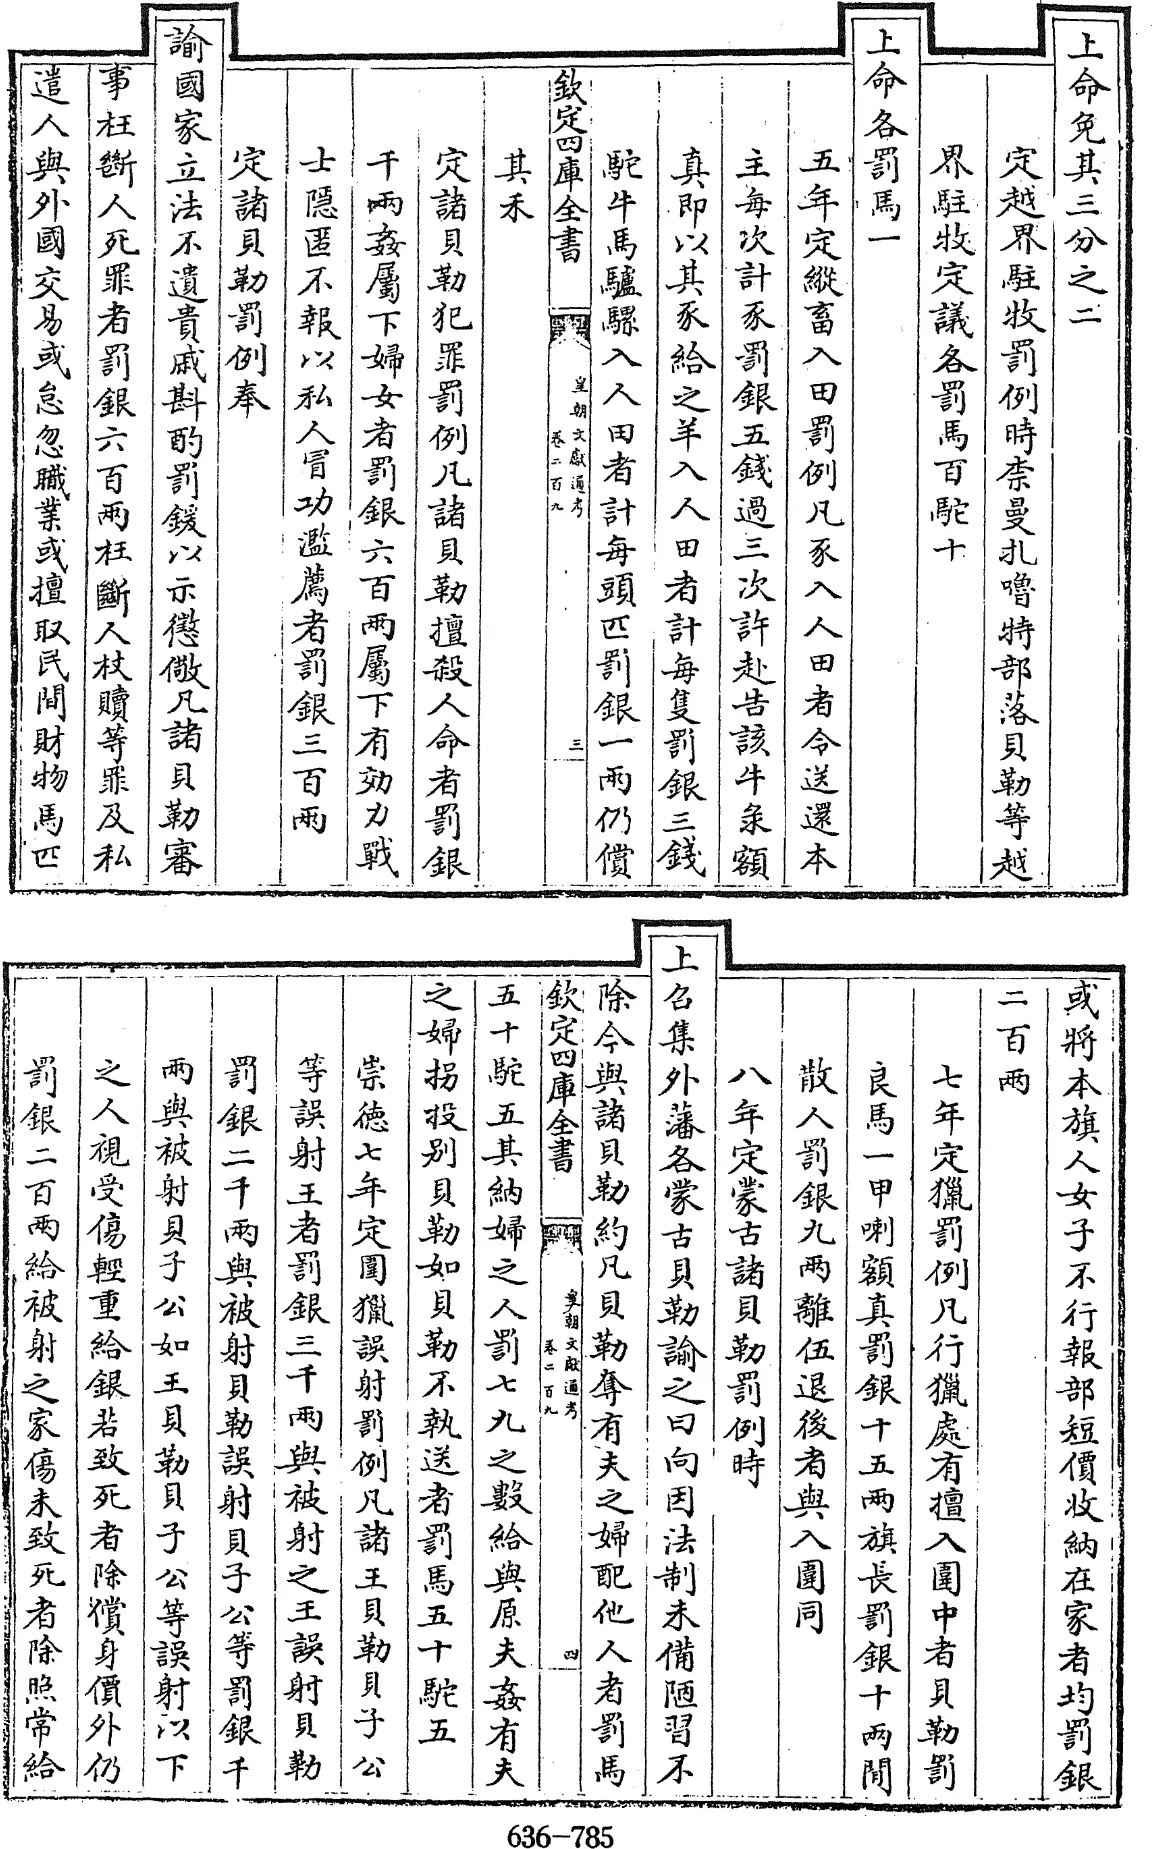 上命免其三分之二
定越界駐牧罰例時柰曼扎嚕特部落貝勒等越
界駐牧定議各罰馬百駝十
上命各罰馬一
五年定縱畜入田罰例凡豕入人田者令送還本
主每次計豕罰銀五錢過三次許赴告該牛彔額
真即以其豕給之羊入人田者計每隻罰銀三錢
駝牛馬驢騾入人田者計每頭匹罰銀一兩仍償
其禾
欽定四庫全書
皇朝文獻通考
卷二百九
三
定諸貝勒犯罪罰例凡諸貝勒擅殺人命者罰銀
千兩姦屬下婦女者罰銀六百兩屬下有効力戰
士隱匿不報以私人冒功濫薦者罰銀三百兩
定諸貝勒罰例奉
諭國家立法不遺貴戚斟酌罰鍰以示懲儆凡諸貝勒審
事枉斷人死罪者罰銀六百兩枉斷人杖贖等罪及私
遣人與外國交易或怠忽職業或擅取民間財物馬匹
或將本旗人女子不行報部短價收納在家者均罰銀
二百兩
七年定獵罰例凡行獵處有擅入圍中者貝勒罰
良馬一甲喇額真罰銀十五兩旗長罰銀十兩閒
散人罰銀九兩離伍退後者與入圍同
八年定蒙古諸貝勒罰例時
上召集外藩各蒙古貝勒諭之曰向因法制未備陋習不
除今與諸貝勒約凡貝勒奪有夫之婦配他人者罰馬
欽定四庫全書
皇朝文獻通考
卷二百九
四
五十駝五其納婦之人罰七九之數給與原夫姦有夫
之婦拐投別貝勒如貝勒不執送者罰馬五十駝五
崇德七年定圍獵誤射罰例凡諸王貝勒貝子公
等誤射王者罰銀三千兩與被射之王誤射貝勒
罰銀二千兩與被射貝勒誤射貝子公等罰銀千
兩與被射貝子公如王貝勒貝子公等誤射以下
之人視受傷輕重給銀若致死者除償身價外仍
罰銀二百兩給被射之家傷未致死者除照常給
636-785